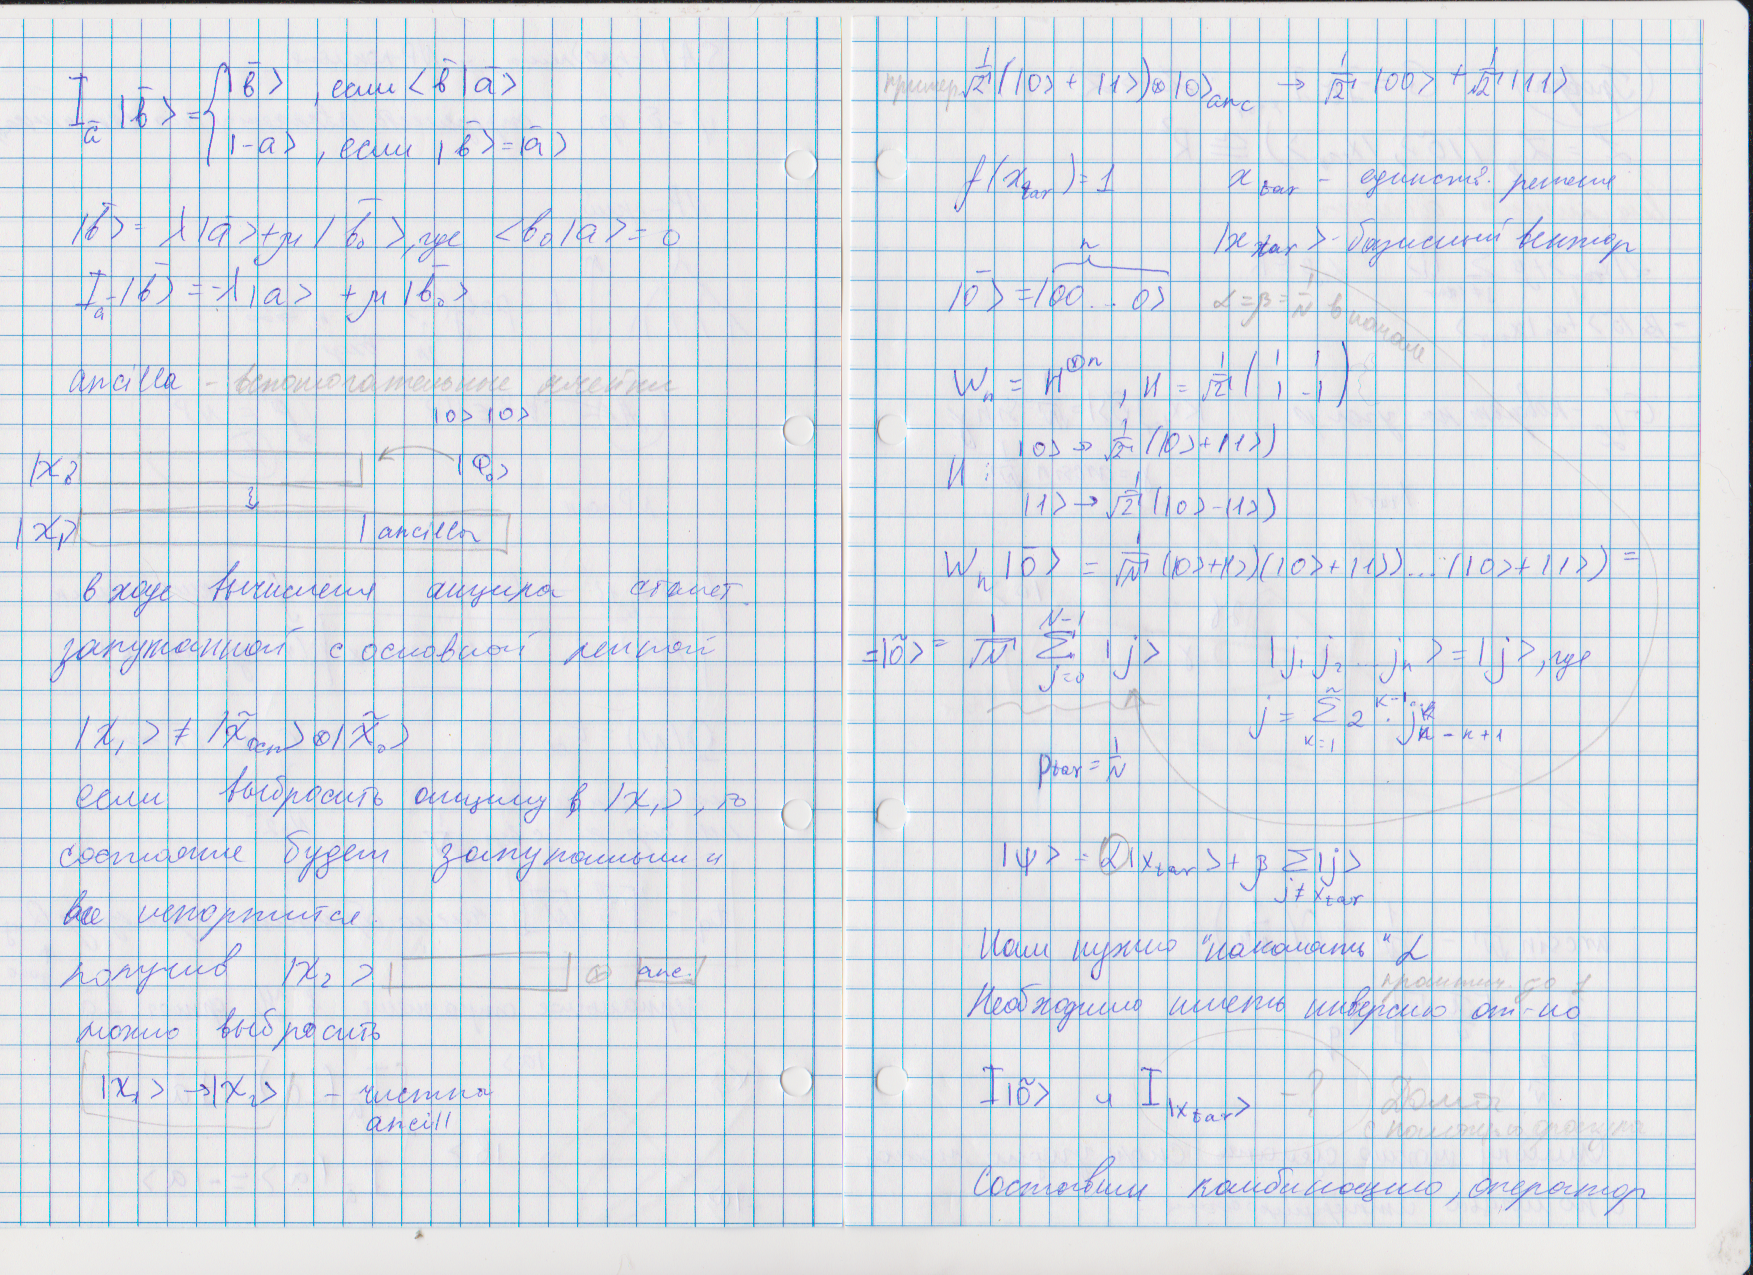 I_ā |b̄> = { |b̄>, если <b̄|ā>
|-a>, если |b̄>=|ā>
|b̄> = λ|ā>+μ|b̄₀>, где <b₀|a> = 0
I_ā|b̄> = -λ|a> + μ|b̄₀>
ancilla - вспомогательные ячейки
|0> |0>
|X₀> |Φ₀>
|X₁> | ancilla
в ходе вычисления анцила станет
запутанной с основной лентой
|X₁> ≠ |X̃осн> ⊗ |X̃₀>
если выбросить анцилу в |X₁>, то
состояние будет запутанным и
все испортится.
получив |X₂> ⊗ anc.
можно выбросить
|X₁> → |X₂> - чистка
ancill
пример 1/√2 (|0> + |1>) ⊗ |0>anc → 1/√2 |00> + 1/√2 |11>
f(x_tar) = 1 x_tar - единств. решение
|x_tar> - базисный вектор
n
|0̄> = |00...0> α=β=1/N в начале
W_n = H^⊗n, H = 1/√2 (1 1
1 -1)
|0> → 1/√2 (|0>+|1>)
H:
|1> → 1/√2 (|0>-|1>)
W_n |0̄> = 1/√N (|0>+|1>)(|0>+|1>)...(|0>+|1>) =
= |õ> = 1/√N Σ_{j=0}^{N-1} |j> |j₁ j₂ ... j_n> = |j>, где
j = Σ_{k=1}^{n} 2^{k-1} · j_{n-k+1}
p_tar = 1/N
|ψ> = α|x_tar> + β Σ_{j≠x_tar} |j>
Нам нужно "накачать" α
практич. до 1
Необходимо иметь инверсию от-но
I|õ> и I|x_tar> - ?
Составим комбинацию, оператор